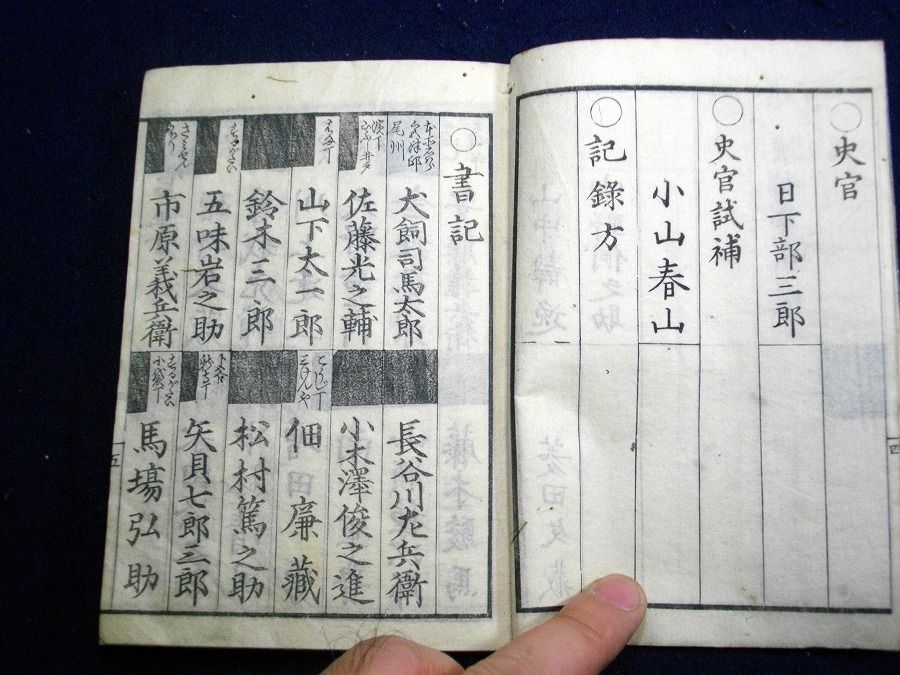 〇史官
日下部三郎
〇史官試補
小山春山
〇記録方
四
〇書記
尾州
犬飼司馬太郎
佐藤光之輔
山下太一郎
鈴木三郎
五味岩之助
市原義兵衛
長谷川左兵衛
小木澤俊之進
佃廉藏
松村篤之助
矢貝七郎三郎
馬場弘助
五